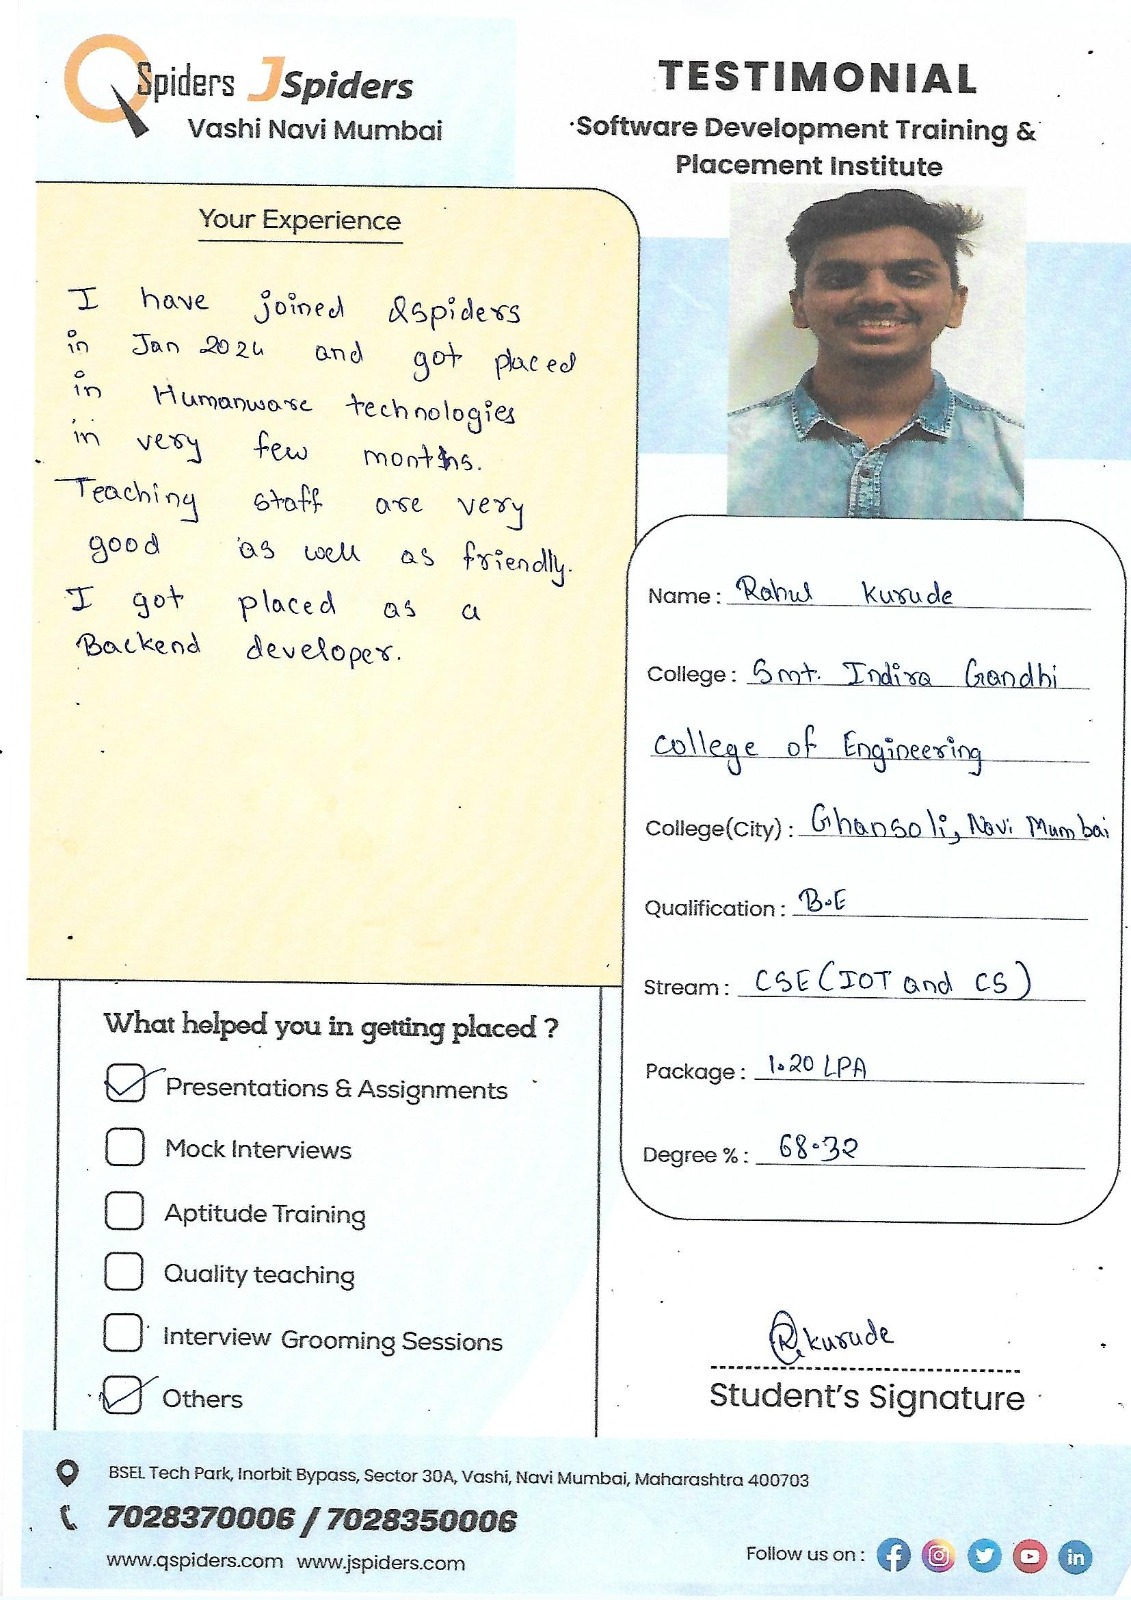 QSpiders JSpiders
Vashi Navi Mumbai
TESTIMONIAL
Software Development Training &
Placement Institute
Your Experience
I have joined Qspiders
in Jan 2024 and got placed
in Humanware technologies
in very few months.
Teaching staff are very
good as well as friendly.
I got placed as a
Backend developer.
Name : Rahul Kurude
College : Smt. Indira Gandhi
college of Engineering
College(City) : Ghansoli, Navi Mumbai
Qualification : B.E
Stream : CSE (IOT and CS)
Package : 1.20 LPA
Degree % : 68.32
What helped you in getting placed ?
Presentations & Assignments
Mock Interviews
Aptitude Training
Quality teaching
Interview Grooming Sessions
Others
R.kurude
Student's Signature
BSEL Tech Park, Inorbit Bypass, Sector 30A, Vashi, Navi Mumbai, Maharashtra 400703
7028370006 / 7028350006
www.qspiders.com www.jspiders.com
Follow us on :